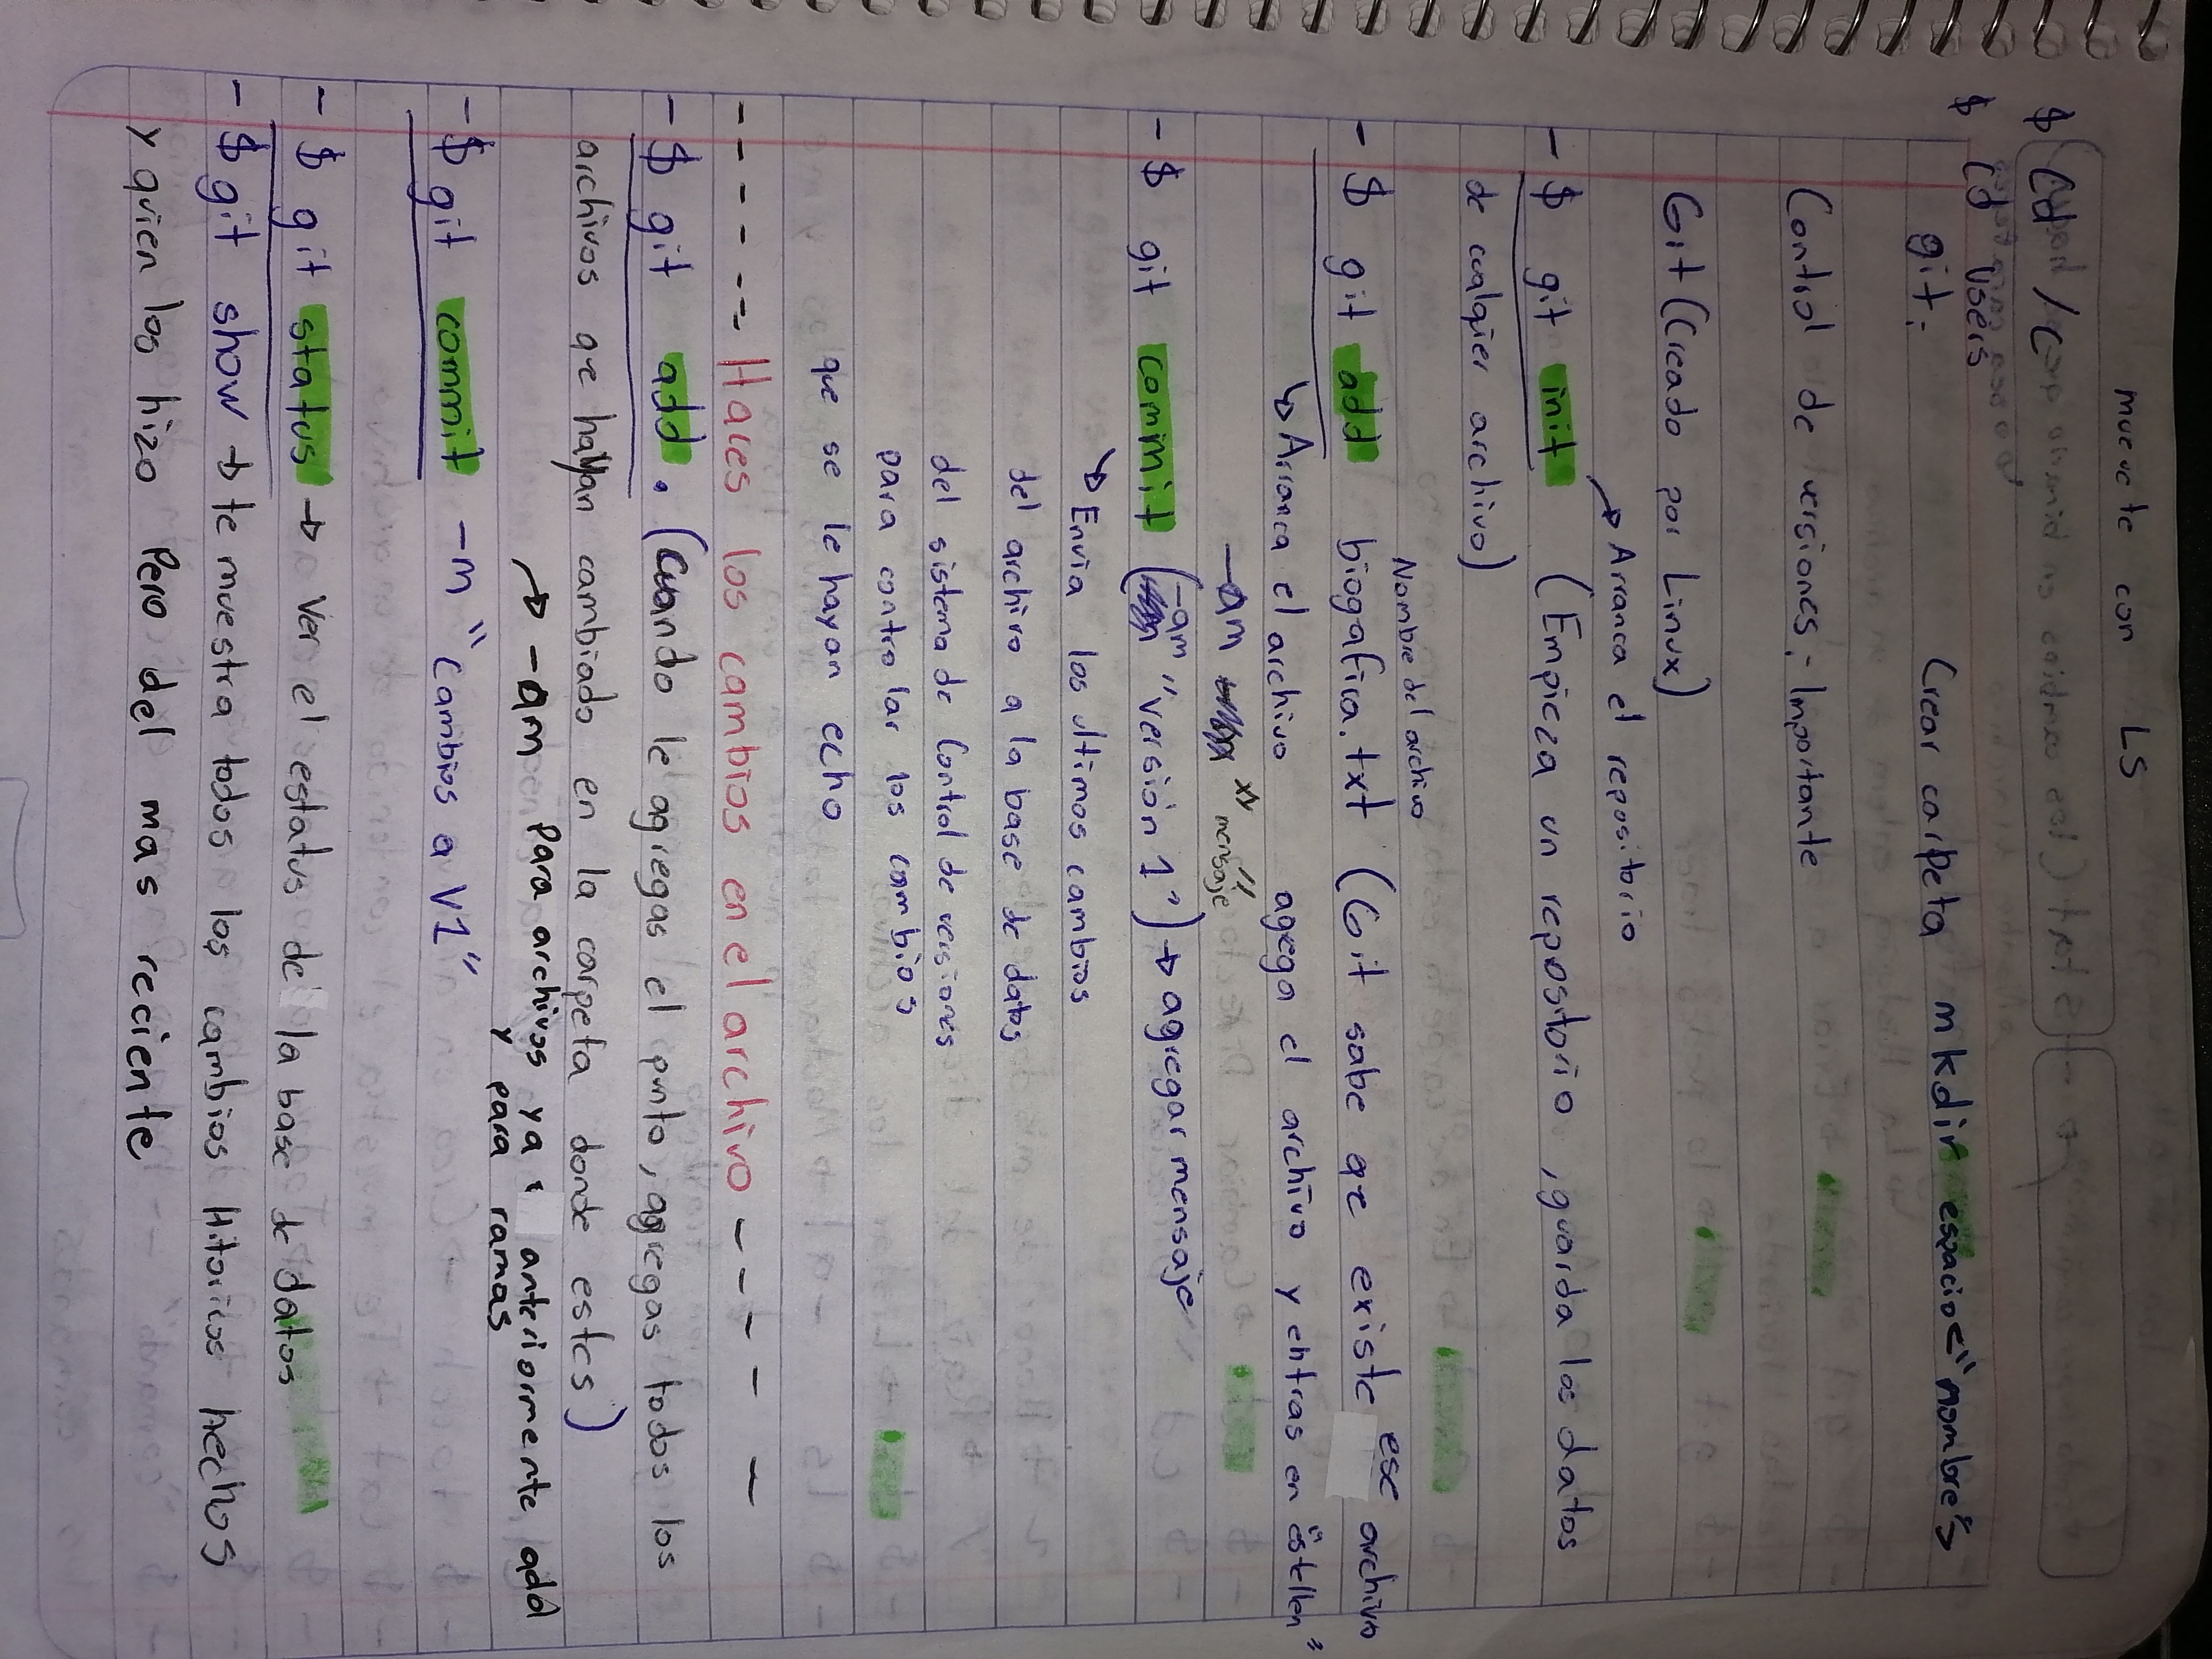 muevete con LS
$ Cd /c
$ Cd Users
git: Crear carpeta mkdir espacio <"nombre">
Control de versiones: Importante
Git (Creado por Linux)
→ Arranca el repositorio
- $ git init (Empieza un repositorio, guarda los datos
de cualqier archivo)
Nombre del archivo
- $ git add biogafica.txt (Git sabe qe existe ese archivo
↳ Arranca el archivo agega el archivo y entras en "estellen"
-am "mensaje"
- $ git commit (-am "versión 1") → agregar mensaje
↳ Envia los ultimos cambios
del archivo a la base de datos
del sistema de Control de versiones
para controlar los cambios
que se le hayan echo
------ Haces los cambios en el archivo -----
- $ git add . (Cuando le agregas el punto, agregas todos los
archivos qe hayan cambiado en la carpeta donde estes)
→ -am Para archivos ya anteriormente add
y para ramas
- $ git commit -m "Cambios a V1"
- $ git status → Ver el estatus de la base de datos
- $ git show → te muestra todos los cambios Hitoricos hechos
y quien los hizo Pero del mas reciente